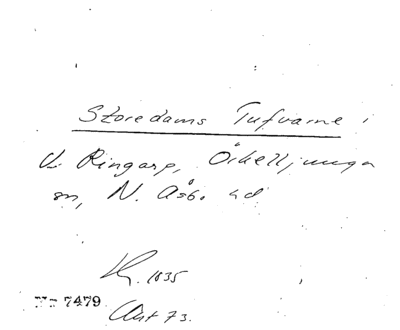 Storedams Tufvarne i
V. Ringarp, Örkelljunga
sn, N. Åsbo hd
1835
Nr 7479
Akt 73.